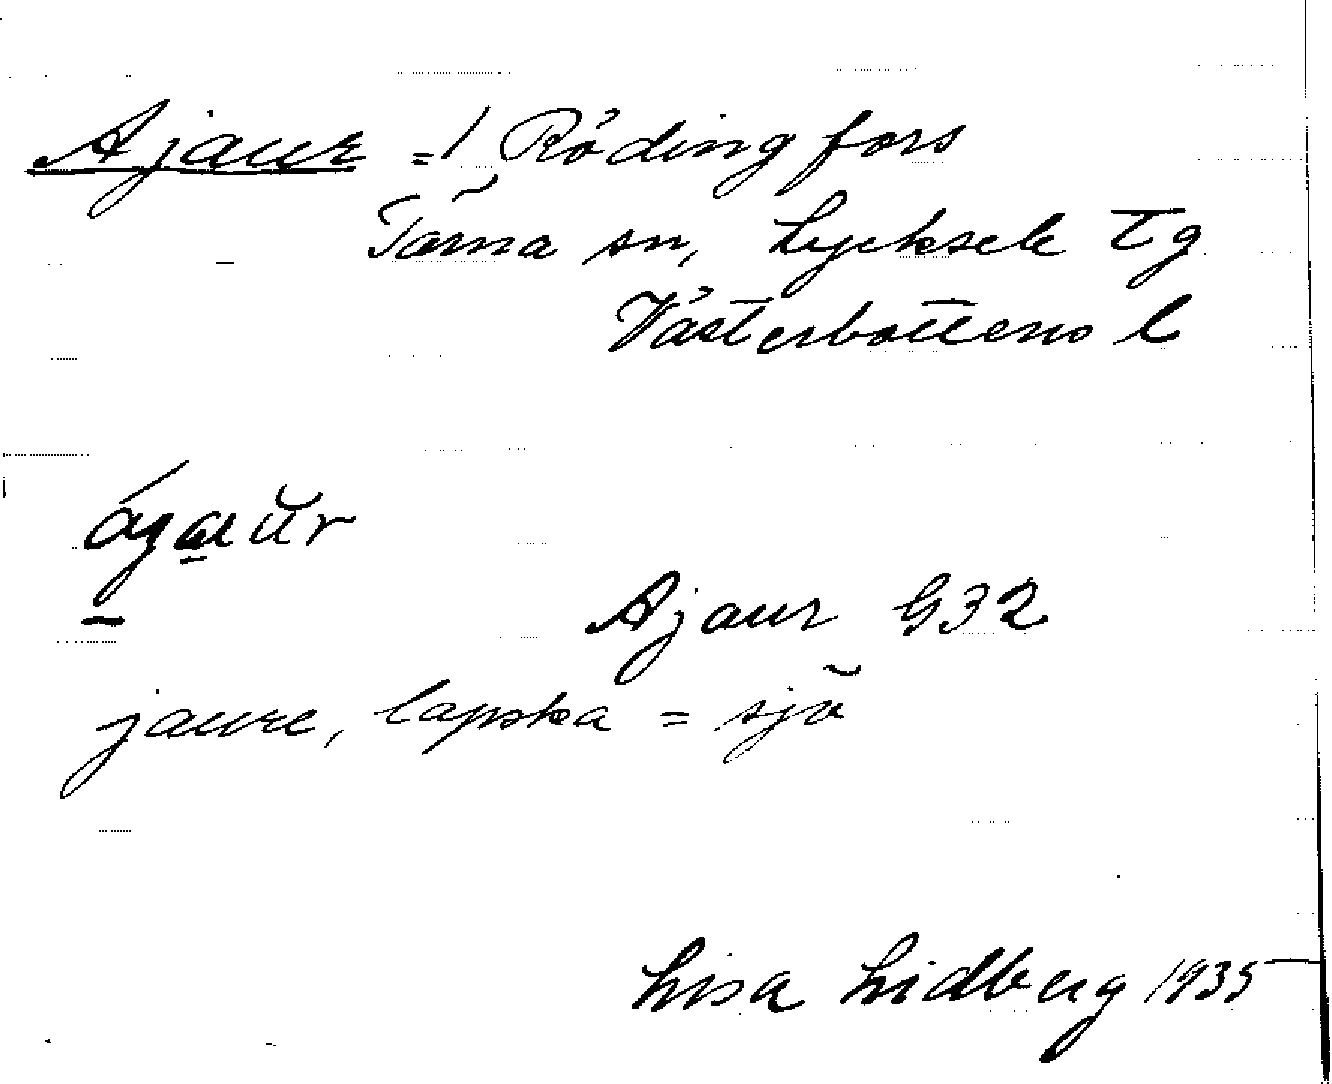 Ajaur =/ Rödingfors
Tärna sn, Lycksele tg
Västerbottens l
Ajaur G32
jaure, lapska = sjö
Lisa Lidberg 1935